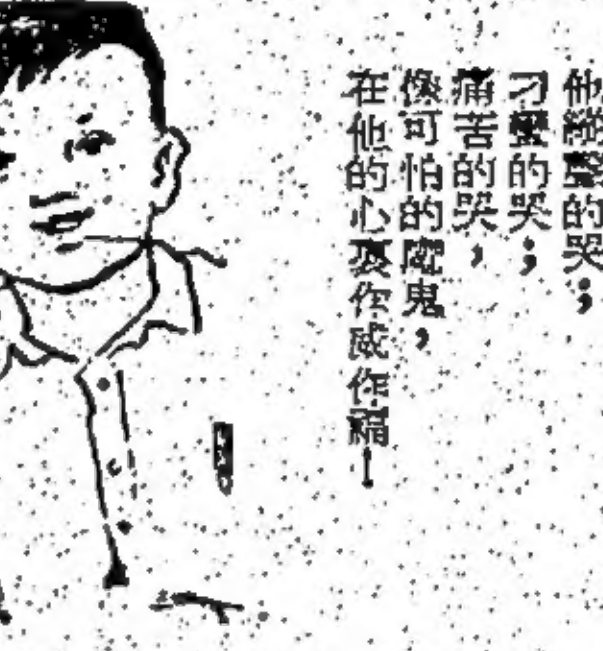 他縱聲的哭；
刁蠻的哭；
痛苦的哭，
像可怕的魔鬼，
在他的心裏作威作福！